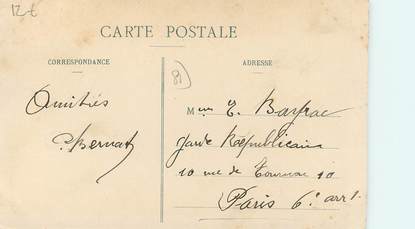 12 €
CARTE POSTALE
CORRESPONDANCE
ADRESSE
81
Amitiés
Bernat
Mme E. Bayrac
garde Républicain
10 rue de Tournon 10
Paris 6e arrt